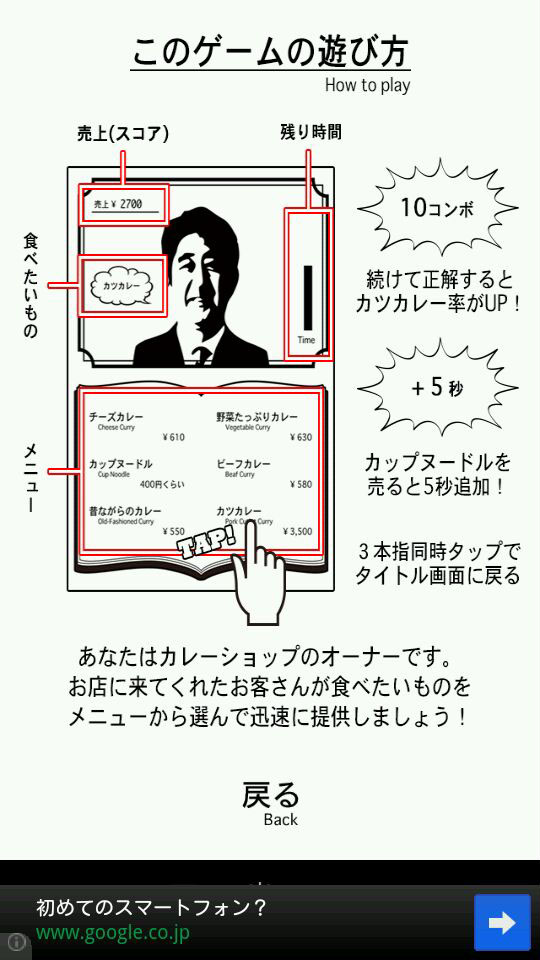 このゲームの遊び方
How to play
売上(スコア)
残り時間
売上 ¥ 2700
食べたいもの
カツカレー
Time
10コンボ
続けて正解すると
カツカレー率がUP！
+5秒
カップヌードルを
売ると5秒追加！
3本指同時タップで
タイトル画面に戻る
メニュー
チーズカレー
Cheese Curry
¥610
野菜たっぷりカレー
Vegetable Curry
¥630
カップヌードル
Cup Noodle
400円くらい
ビーフカレー
Beaf Curry
¥580
昔ながらのカレー
Old-Fashioned Curry
¥550
カツカレー
Pork Curry
¥3,500
TAP!
あなたはカレーショップのオーナーです。
お店に来てくれたお客さんが食べたいものを
メニューから選んで迅速に提供しましょう！
戻る
Back
初めてのスマートフォン？
www.google.co.jp